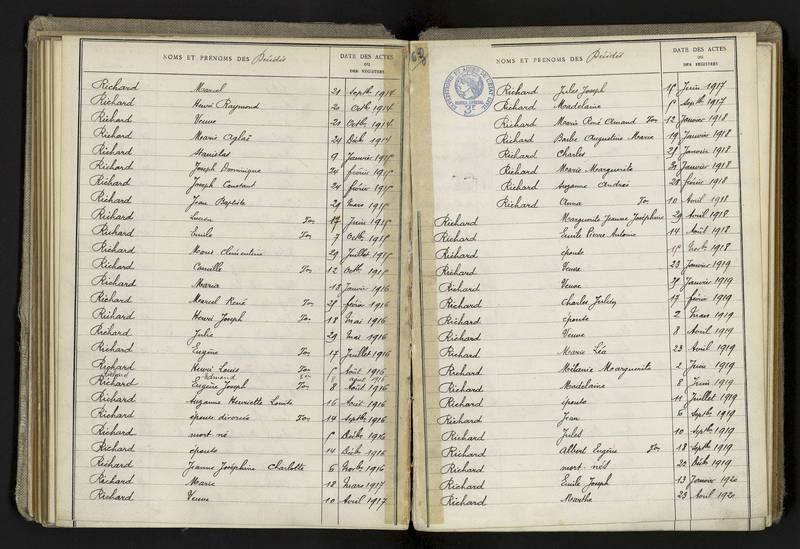 NOMS ET PRENOMS DES Décédés
DATE DES ACTES
OU
DES REGISTRES
Richard Marcel 21 Septbre 1914
Richard Henri Raymond 20 Octb. 1914
Richard Veuve 21 Octbre 1914
Richard Marie Aglaé 24 Décb. 1914
Richard Stanislas 9 Janvier 1915
Richard Joseph Dominique 24 février 1915
Richard Joseph Constant 24 février 1915
Richard Jean Baptiste 29 mars 1915
Richard Lucien 17 Juin 1915
Richard Emile 7 Octb. 1915
Richard Marie Clémentine 29 Juillet 1915
Richard Camille 12 Octb. 1915
Richard Maria 13 Janvier 1916
Richard Marcel René 25 février 1916
Richard Henri Joseph 18 Mai 1916
Richard Julie 29 Mai 1916
Richard Eugène 17 Juillet 1916
Richard Henri Louis 5 Août 1916
Richard Edmond 8 août 1916
Richard Eugène Joseph 8 Août 1916
Richard Suzanne Henriette Louise 16 Août 1916
Richard épouse divorcée 14 Septb. 1916
Richard mort-né 5 Décb. 1916
Richard épouse 14 Décb. 1916
Richard Jeanne Joséphine Charlotte 6 1916
Richard Marie 18 Mars 1917
Richard Veuve 10 Avril 1917
NOMS ET PRENOMS DES Décédés
DATE DES ACTES
OU
DES REGISTRES
Richard Jules Joseph 15 Juin 1917
Richard Madeleine 5 Septb. 1917
Richard Marie René Amand 12 Janvier 1918
Richard Barbe Augustine Marie 19 Janvier 1918
Richard Charles 25 Janvier 1918
Richard Marie Marguerite 30 Janvier 1918
Richard Suzanne Andrée 28 février 1918
Richard Anna 10 Avril 1918
Richard Marguerite Jeanne Joséphine 29 Avril 1918
Richard Emile Pierre Antoine 14 Août 1918
Richard épouse 15 1918
Richard Veuve 23 Janvier 1919
Richard Veuve 31 Janvier 1919
Richard Charles 17 février 1919
Richard épouse 2 Mars 1919
Richard Veuve 8 Avril 1919
Richard Marie Léa 23 Avril 1919
Richard Mélanie Marguerite 2 Juin 1919
Richard Madeleine 8 Juin 1919
Richard épouse 11 Juillet 1919
Richard Jean 6 Septb. 1919
Richard Jules 10 Septb. 1919
Richard Albert Eugène 18 Septb. 1919
Richard mort-né 20 Décb. 1919
Richard Emile Joseph 13 Janvier 1920
Richard Marthe 23 Avril 1920